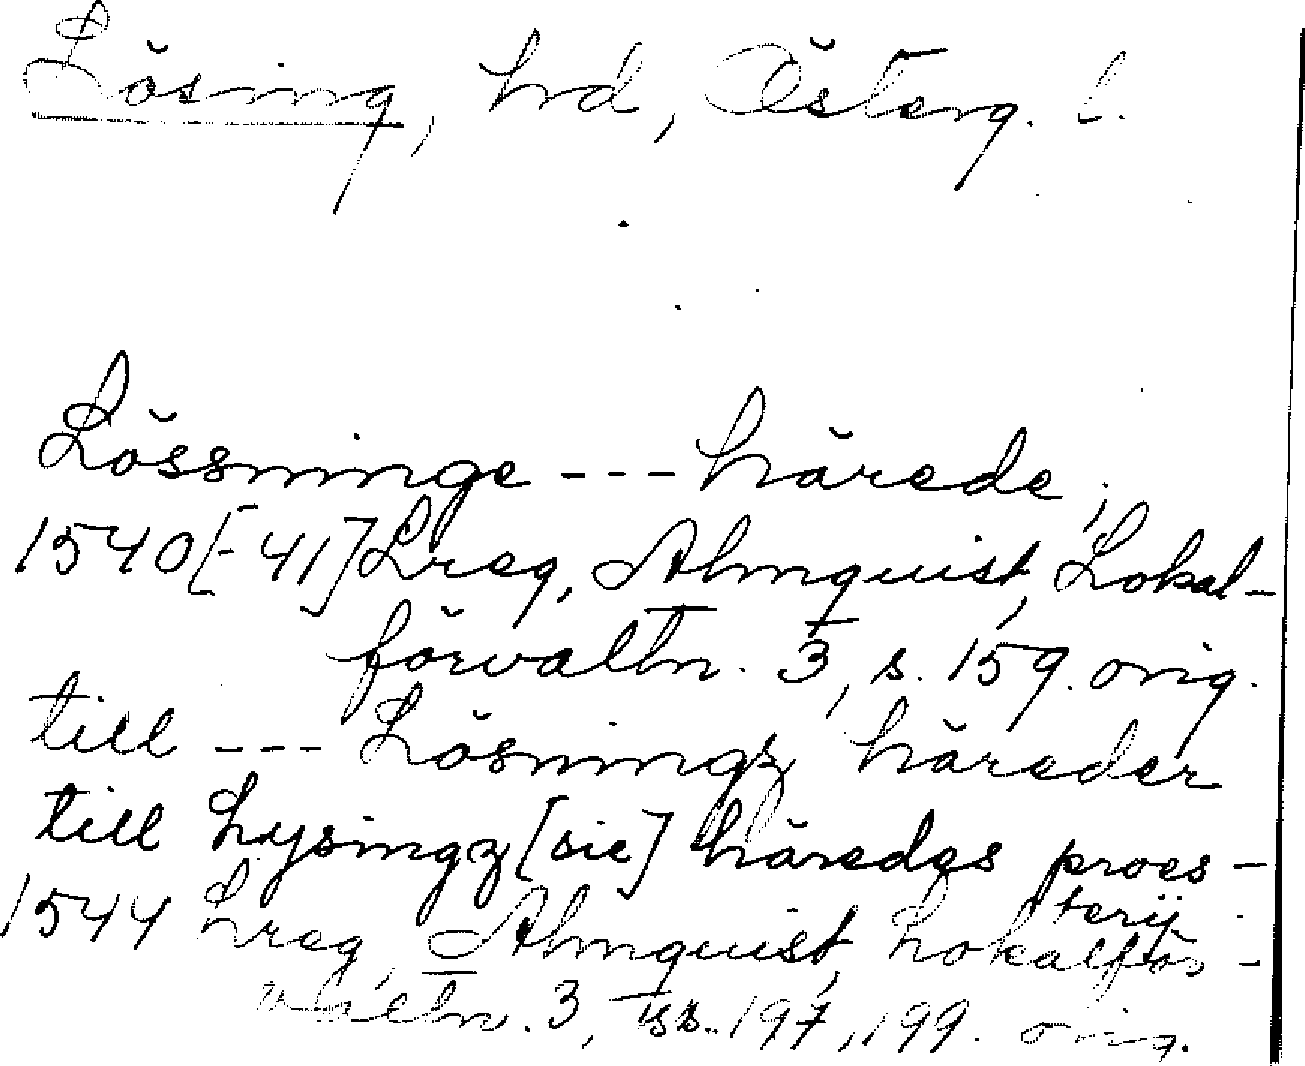 Lösing, hrd, Österg. l.
Lössninge --- härede,
1540[-41] Lreg, Almquist, Lokal-
förvaltn. 3, s. 159. orig.
till --- Lösningz häreder
till Lysingz [sic] häredes proes-
terij
1544 Lreg, Almquist, Lokalför-
valtn. 3, ss. 197, 199. orig.